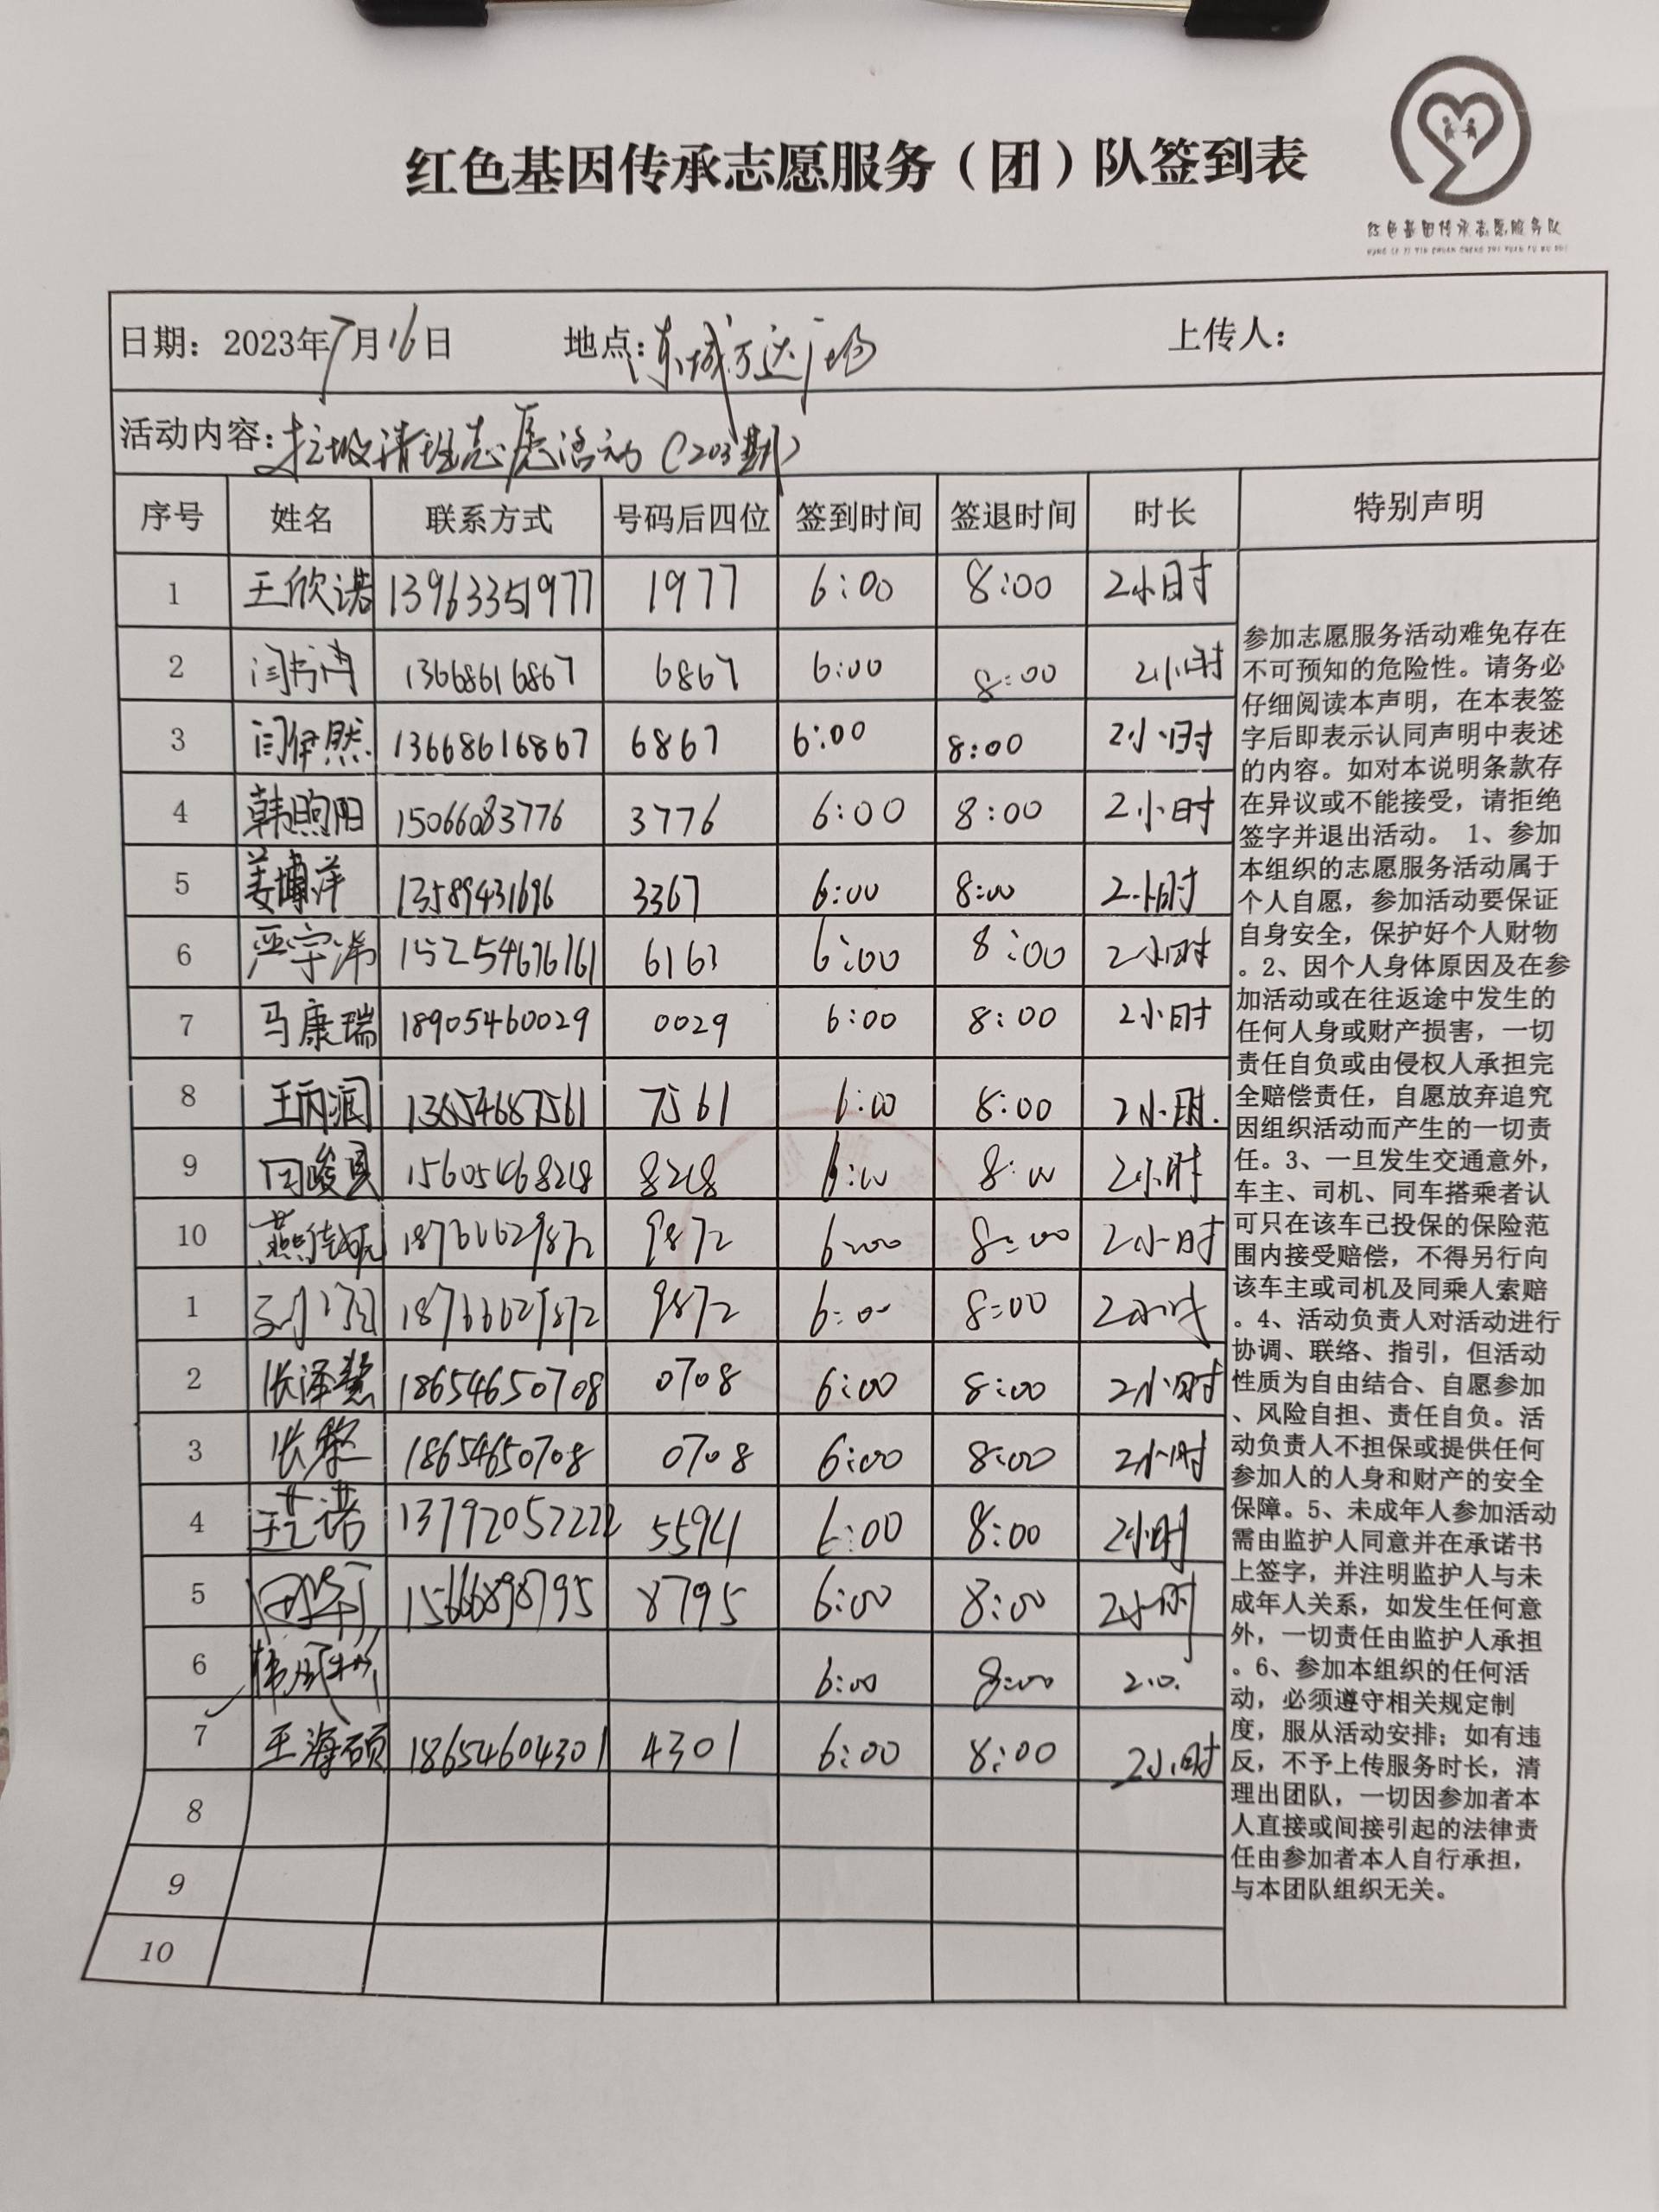 红色基因传承志愿服务（团）队签到表
红色基因传承志愿服务队
HONG SE JI YIN CHUAN CHENG ZHI YUAN FU WU DUI
日期：2023年7月16日 地点：东城万达广场 上传人：
活动内容：垃圾清理志愿活动（203期）
序号 姓名 联系方式 号码后四位 签到时间 签退时间 时长 特别声明
1 王欣诺 13963351977 1977 6:00 8:00 2小时
2 闫书 13668616867 6867 6:00 8:00 2小时
3 闫伊然 13668616867 6867 6:00 8:00 2小时
4 韩煦阳 15066083776 3776 6:00 8:00 2小时
5 姜博洋 13589431696 3367 6:00 8:00 2小时
6 严宇涛 15254676161 6161 6:00 8:00 2小时
7 马康瑞 18905460029 0029 6:00 8:00 2小时
8 王丙润 13654687561 7561 6:00 8:00 2小时.
9 闫峻 15605468218 8218 6:00 8:00 2小时
10 燕佳妮 18766629872 9872 6:00 8:00 2小时
1 18766629872 9872 6:00 8:00 2小时
2 张泽慧 18654650708 0708 6:00 8:00 2小时
3 张黎 18654650708 0708 6:00 8:00 2小时
4 王艺诺 13792052222 5594 6:00 8:00 2小时
5 15666898795 8795 6:00 8:00 2小时
6 韩 6:00 8:00 2.0.
7 王海硕 18654604301 4301 6:00 8:00 2小时
8
9
10
参加志愿服务活动难免存在
不可预知的危险性。请务必
仔细阅读本声明，在本表签
字后即表示认同声明中表述
的内容。如对本说明条款存
在异议或不能接受，请拒绝
签字并退出活动。 1、参加
本组织的志愿服务活动属于
个人自愿，参加活动要保证
自身安全，保护好个人财物
。2、因个人身体原因及在参
加活动或在往返途中发生的
任何人身或财产损害，一切
责任自负或由侵权人承担完
全赔偿责任，自愿放弃追究
因组织活动而产生的一切责
任。3、一旦发生交通意外，
车主、司机、同车搭乘者认
可只在该车已投保的保险范
围内接受赔偿，不得另行向
该车主或司机及同乘人索赔
。4、活动负责人对活动进行
协调、联络、指引，但活动
性质为自由结合、自愿参加
、风险自担、责任自负。活
动负责人不担保或提供任何
参加人的人身和财产的安全
保障。5、未成年人参加活动
需由监护人同意并在承诺书
上签字，并注明监护人与未
成年人关系，如发生任何意
外，一切责任由监护人承担
。6、参加本组织的任何活
动，必须遵守相关规定制
度，服从活动安排；如有违
反，不予上传服务时长，清
理出团队，一切因参加者本
人直接或间接引起的法律责
任由参加者本人自行承担，
与本团队组织无关。